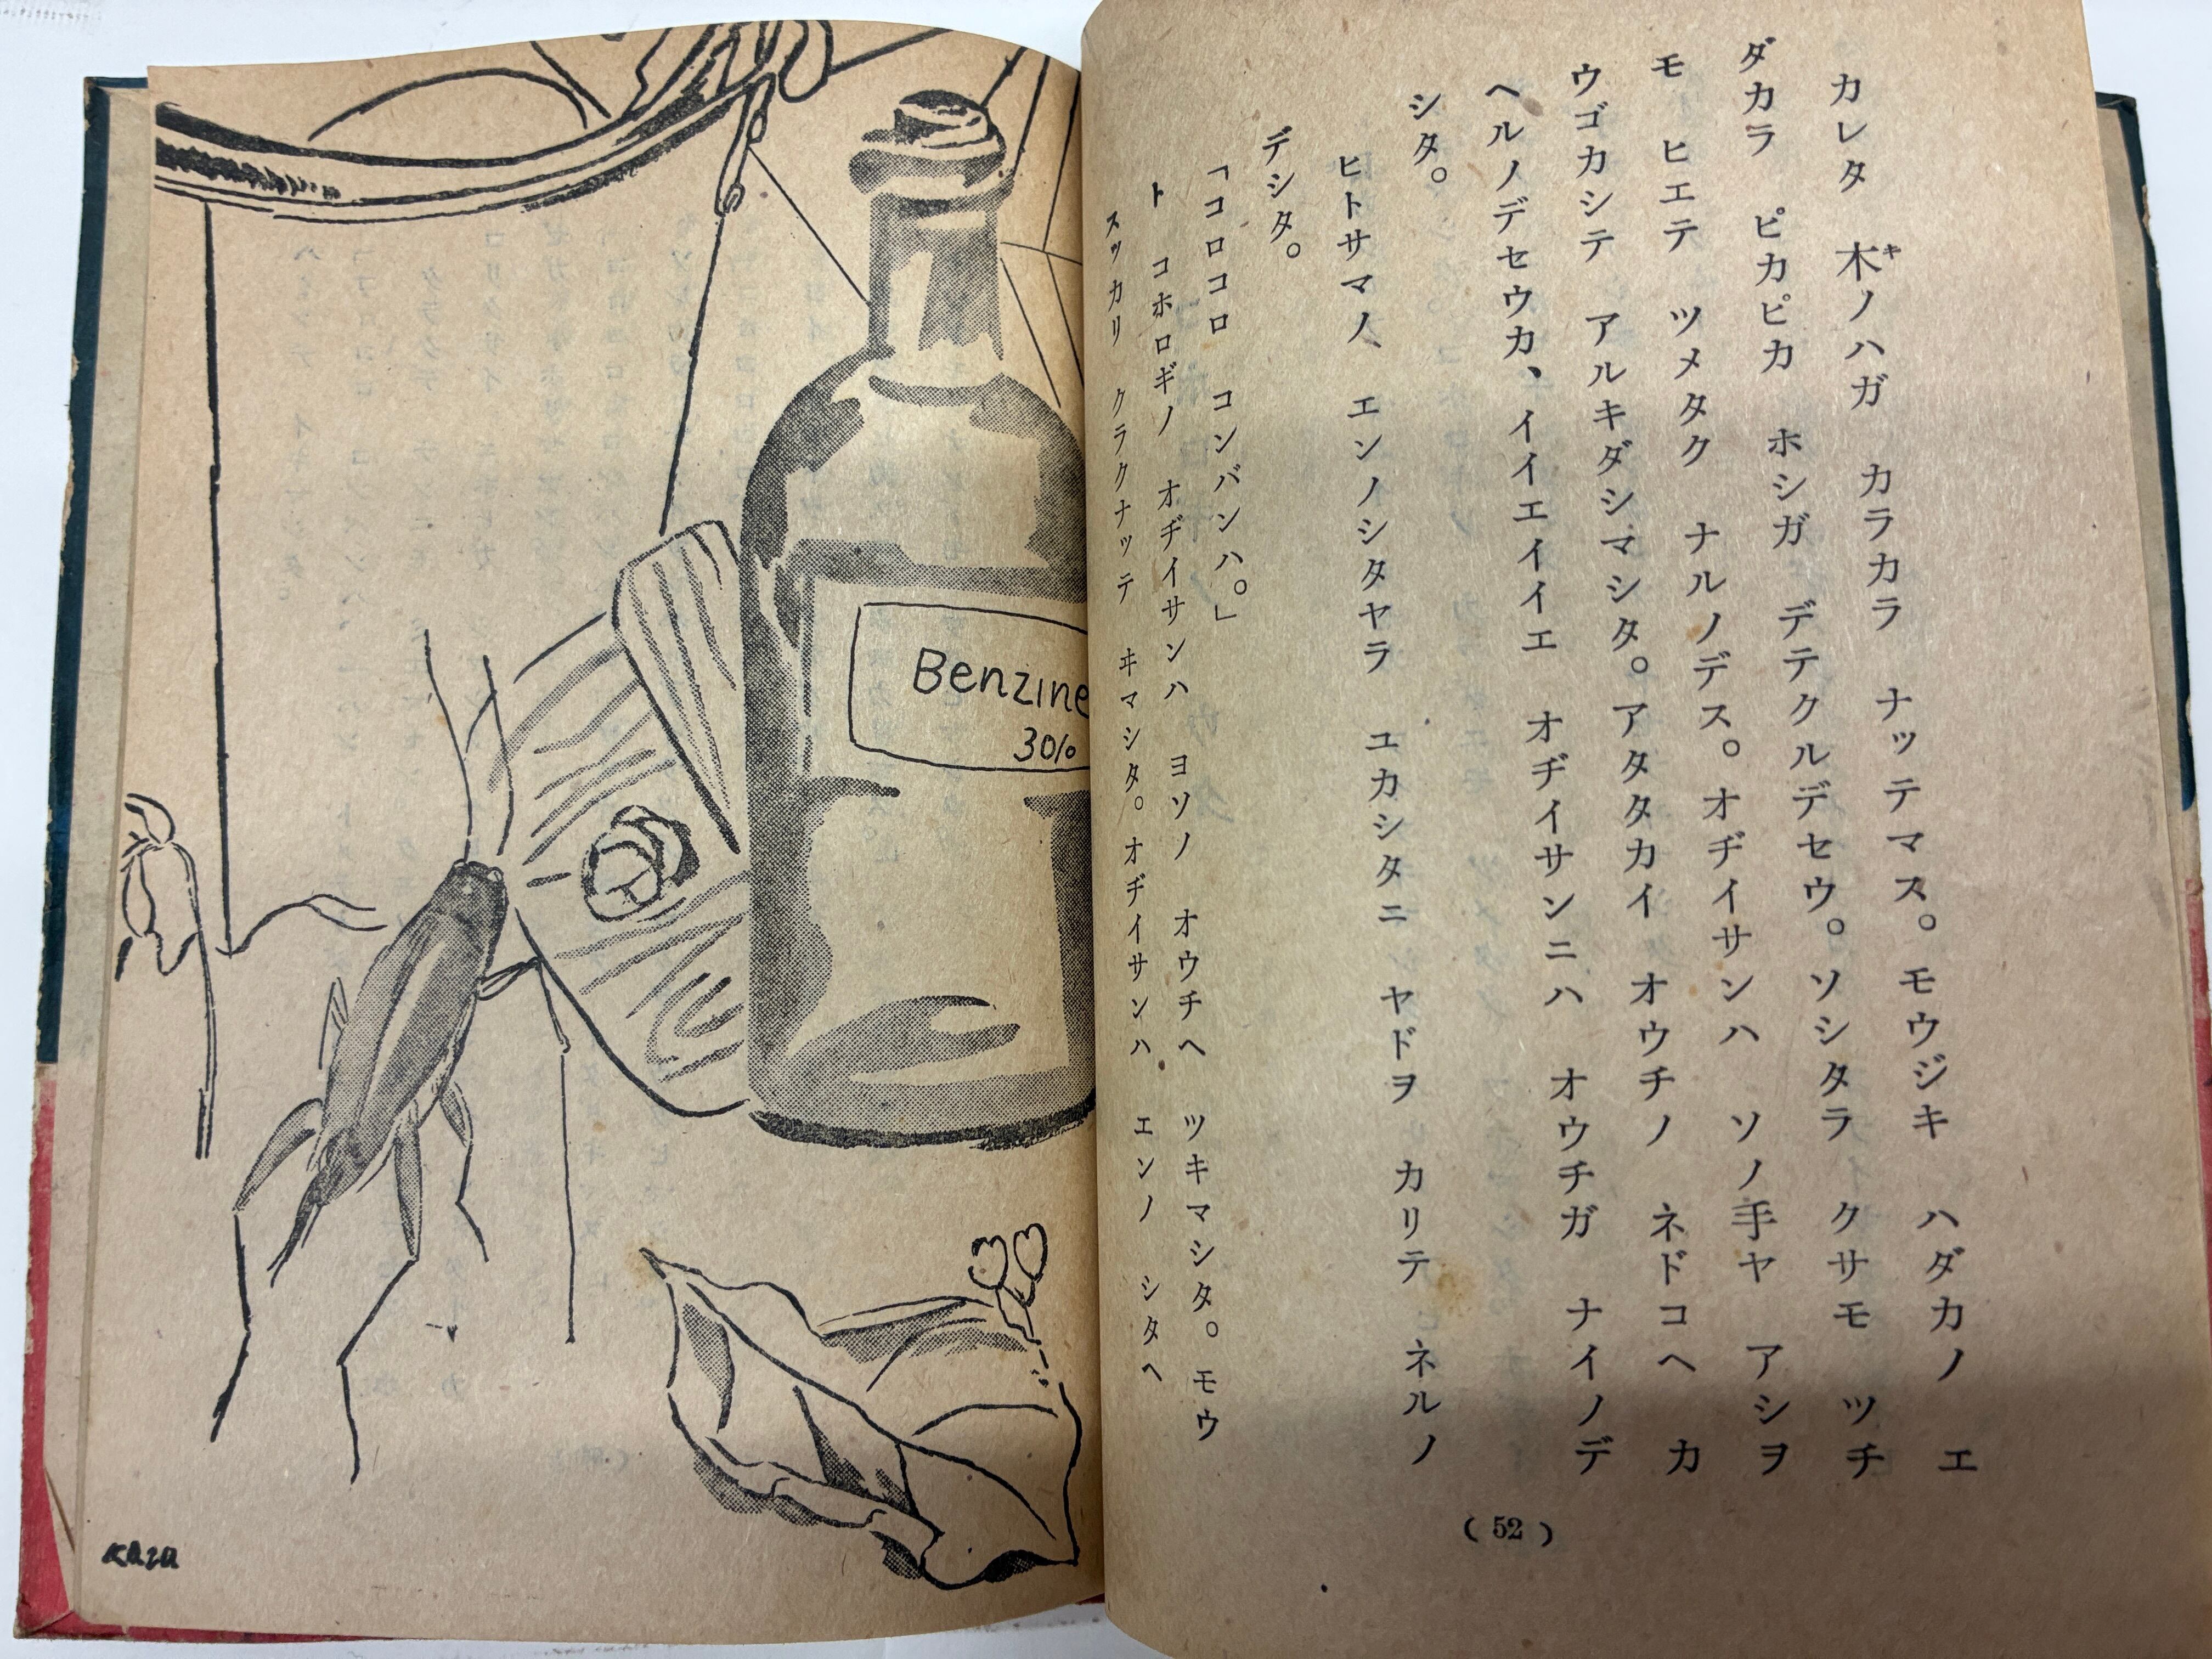 カレタ 木ノハガ カラカラ ナッテマス。モウジキ ハダカノ エ
キ
ダカラ ピカピカ ホシガ デテクルデセウ。ソシタラ クサモ ツチ
モ ヒエテ ツメタク ナルノデス。オヂイサンハ ソノ手ヤ アシヲ
ウゴカシテ アルキダシマシタ。アタタカイ オウチノ ネドコヘ カ
ヘルノデセウカ、イイエイイエ オヂイサンニハ オウチガ ナイノデ
シタ。
ヒトサマノ、エンノシタヤラ ユカシタニ ヤドヲ カリテ ネルノ
デシタ。
「コロコロ コンバンハ。」
ト コホロギノ オヂイサンハ ヨソノ オウチヘ ツキマシタ。モウ
スッカリ クラクナッテ ヰマシタ。オヂイサンハ エンノ シタヘ
( 52 )
Benzine
30%
KAZU